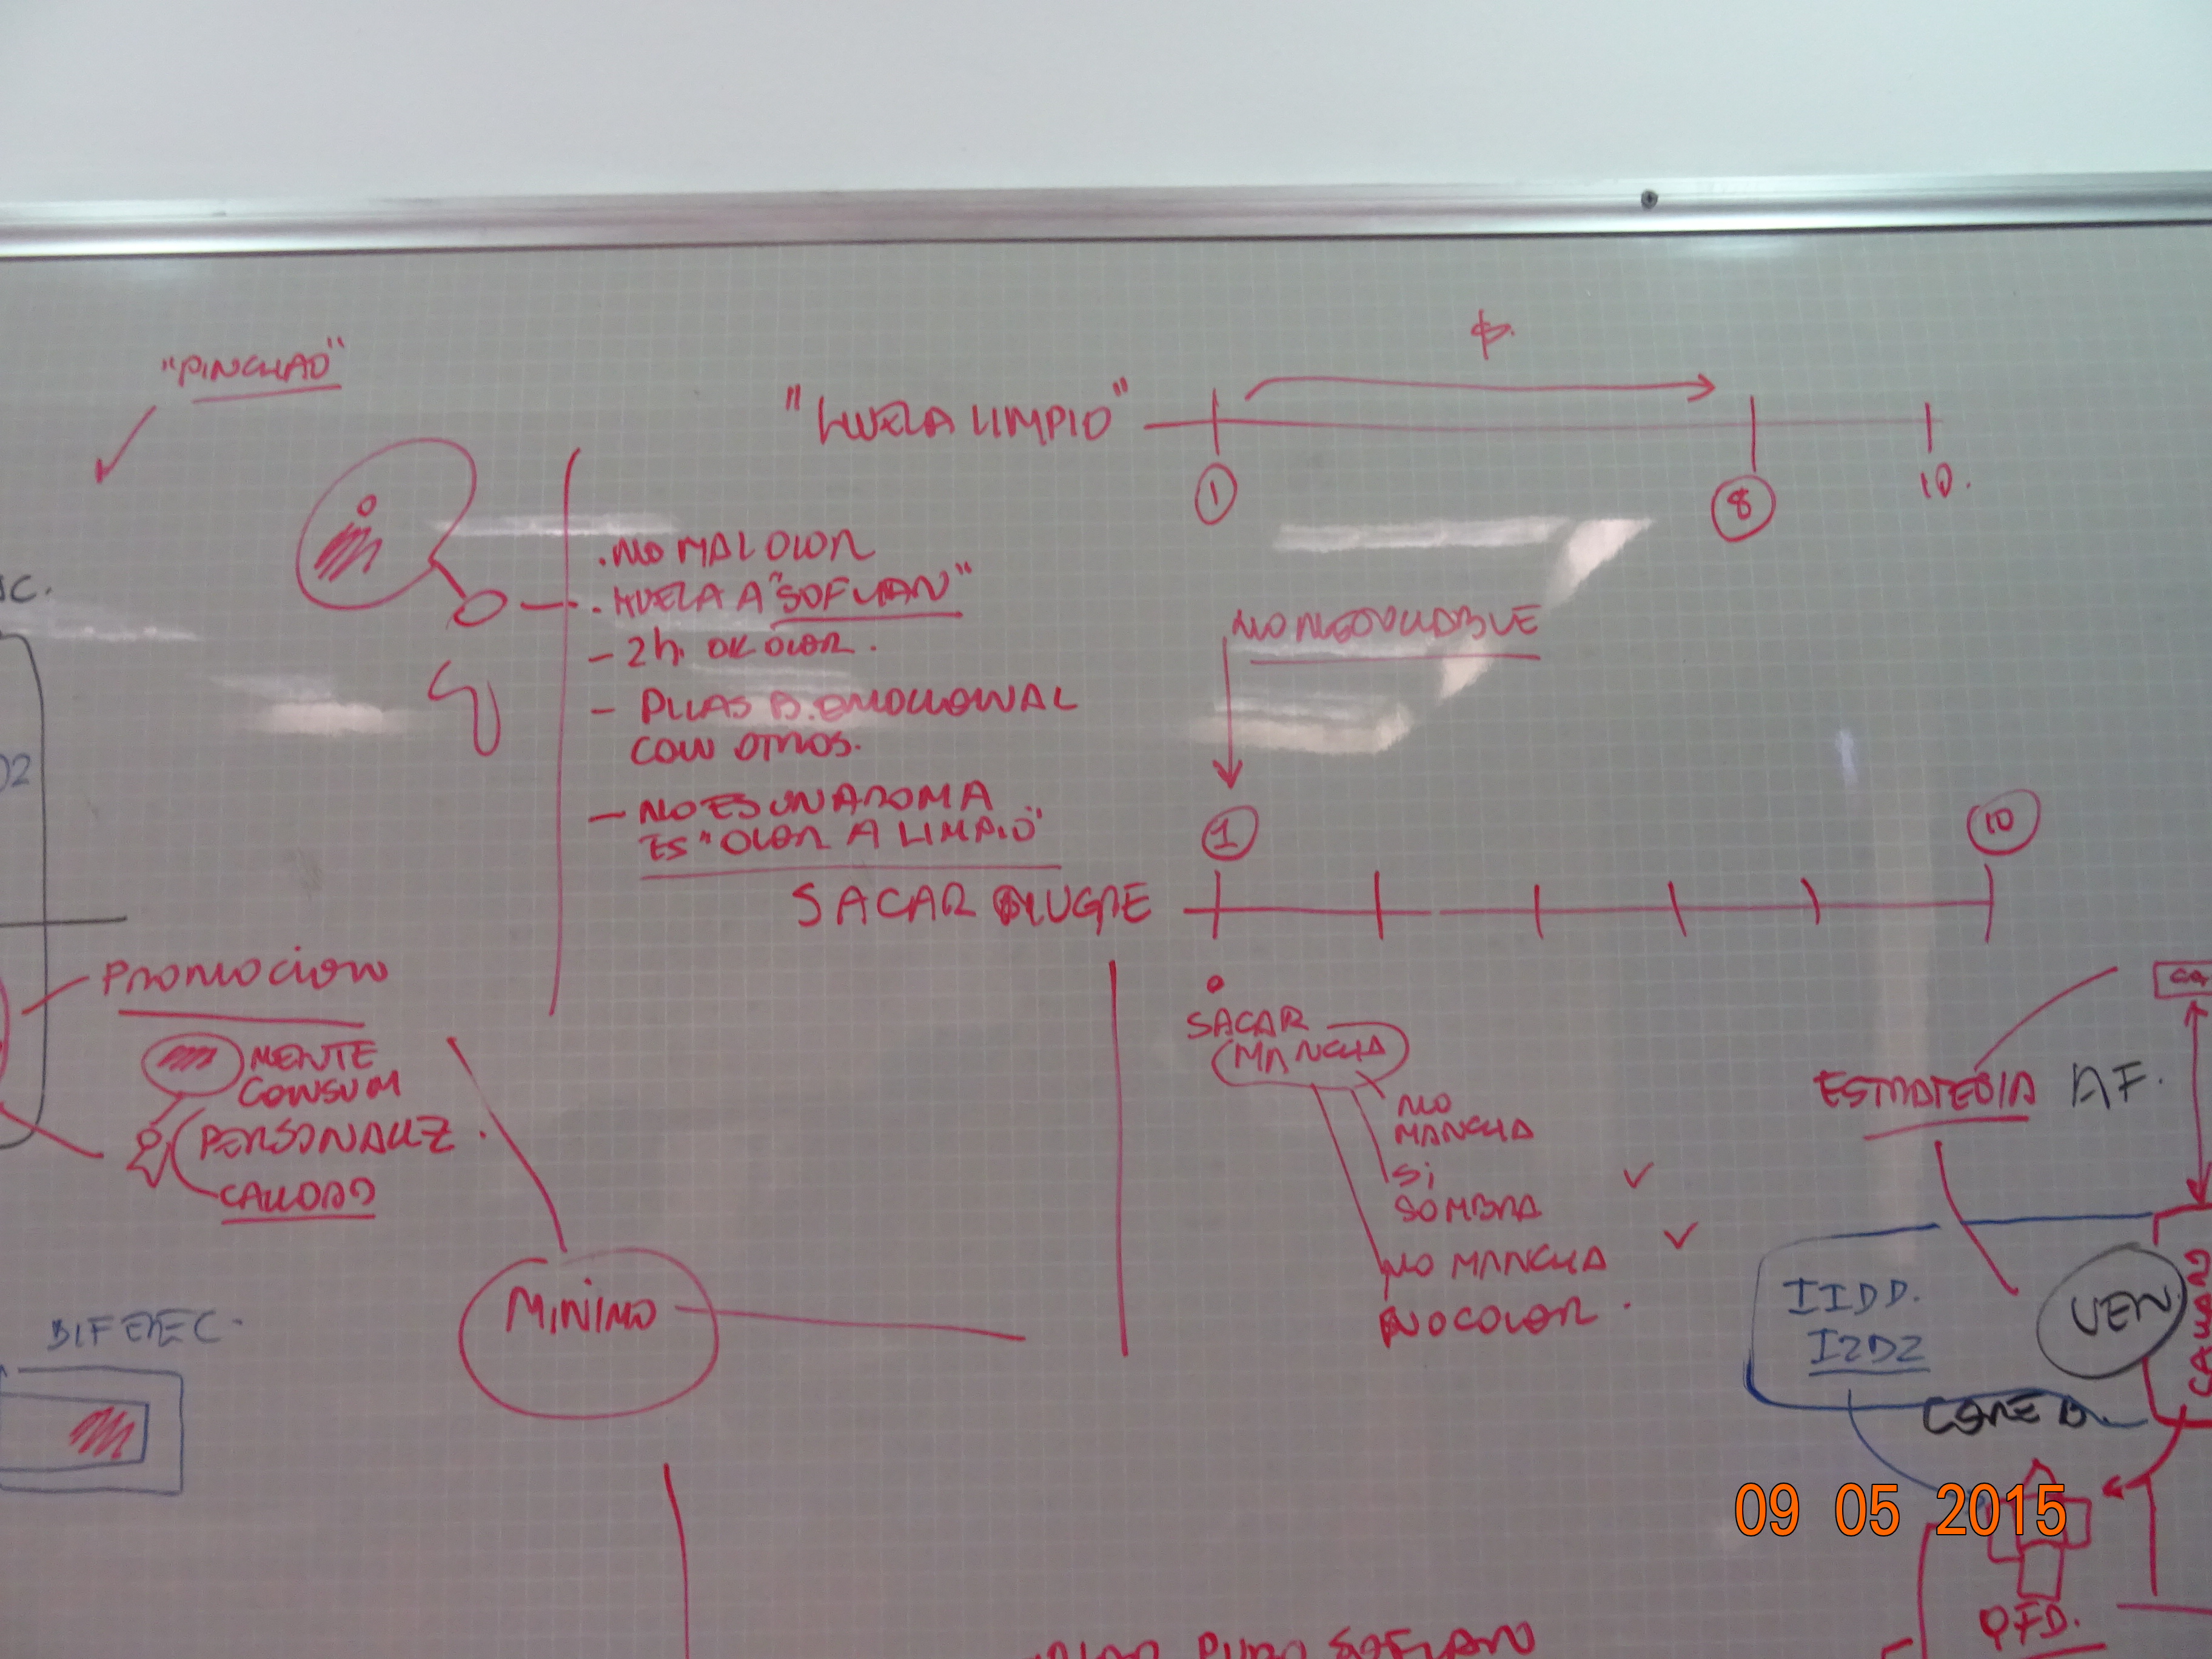 "PINCHAO"
"HUELA LIMPIO"
$.
1
8
10.
. NO MAL OLOR
. HUELA A "SOFLAN"
- 2h. OK OLOR.
- PILAS B. EMOCIONAL
CON OTROS.
- NO ES UN AROMA
ES "OLOR A LIMPIO"
NO NEGOCIABLE
1
10
SACAR MUGRE
SACAR
MANCHA
NO
MANCHA
SI
SOMBRA
NO MANCHA
NO COLOR.
PROMOCION
MENTE
CONSUM
PERSONALIZ.
CALIDAD
MINIMO
ESTRATEGIA AF.
I1DD.
I2D2
VEN
CORE B.
QFD.
PURO SOFLAN
09 05 2015